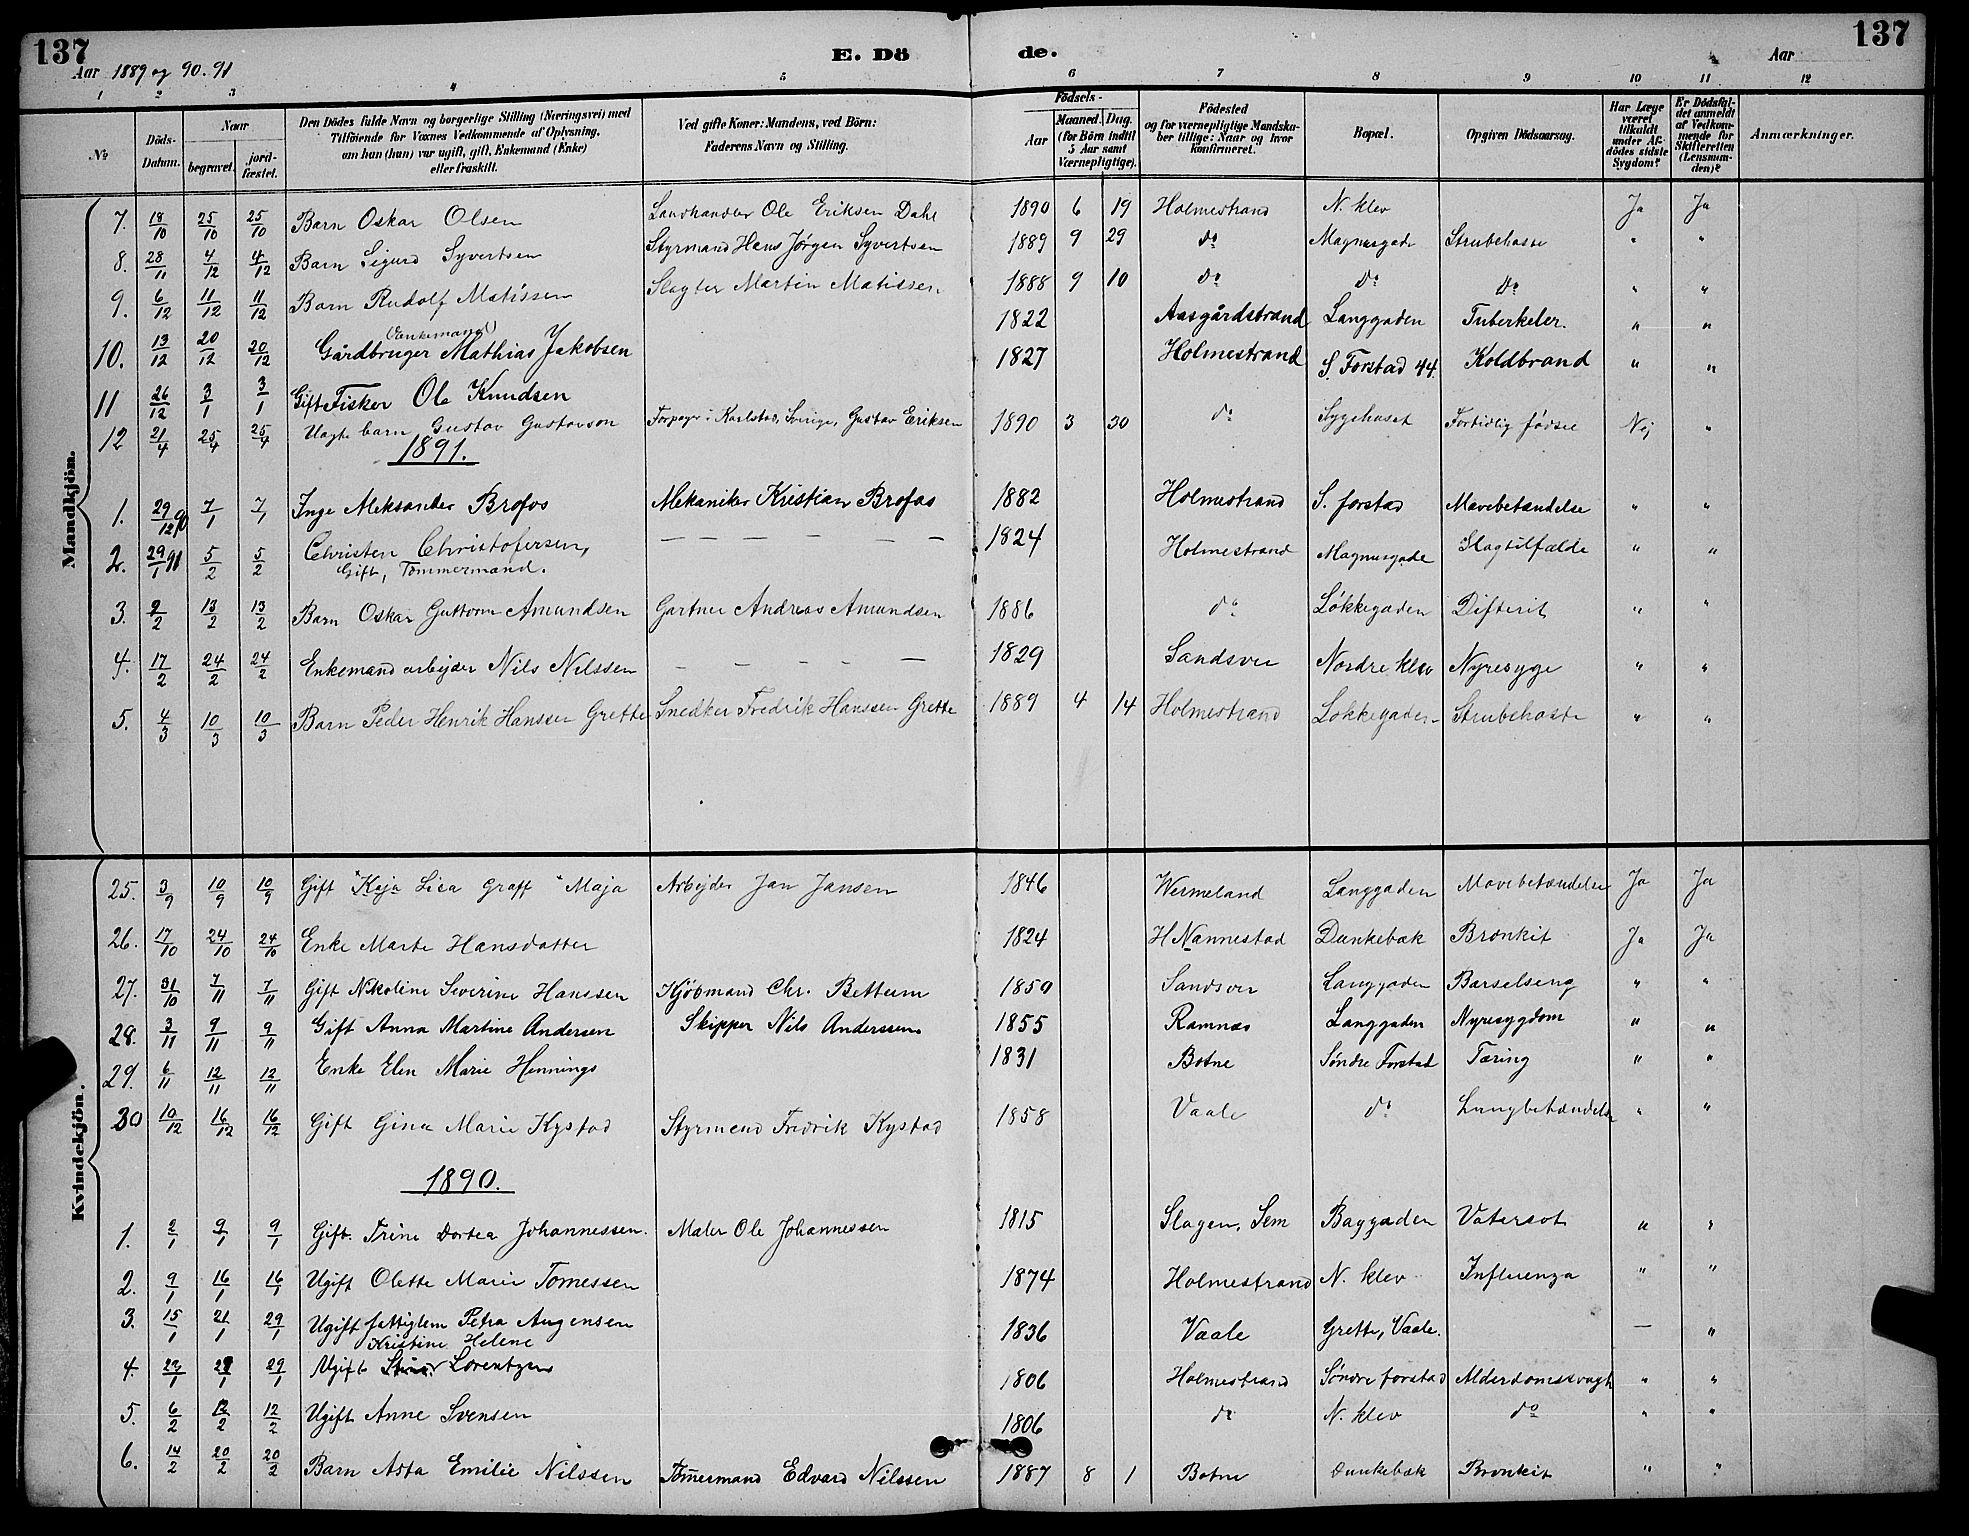 137
137
Aar 1889 og 90. 91
E. Dö de.
Aar
1 2 3 4 5 6 7 8 9 10 11 12
No
Döds-Datum.
Naar
begravet.
jordfæstet.
Den Dödes fulde Navn og borgerlige Stilling (Næringsvei) med Tilföiende for Voxnes Vedkommende af Oplysning, om han (hun) var ugift, gift, Enkemand (Enke) eller fraskilt.
Ved gifte Koner: Mandens, ved Börn: Faderens Navn og Stilling.
Födsels-
Aar
Maaned. Dag.
(for Börn indtil 5 Aar samt Værnepligtige).
Födested og for værnepligtige Mandskaber tillige: Naar og hvor konfirmeret.
Bopæl.
Opgiven Dödsaarsag.
Har Læge været tilkaldt under Afdödes sidste Sygdom?
Er Dödsfaldet anmeldt af Vedkommende for Skifteretten (Lensmanden)?
Anmærkninger.
Mandkjön.
7. 18/10 25/10 25/10 Barn Oskar Olsen Landhandler Ole Eriksen Dahl 1890 6 19 Holmestrand N. klev Ja Ja
8. 28/11 4/12 4/12 Barn Sigurd Syvertsen Styrmand Hans Jørgen Syvertsen 1889 9 29 do Magnusgade Strubehoste " "
9. 6/12 11/12 11/12 Barn Rudolf Matissen Slagter Martin Matissen 1888 9 10 do do do " "
(Enkemand)
10. 13/12 20/12 20/12 Gårdbruger Mathias Jakobsen 1822 Aasgårdstrand Langgaden Tuberkeler. " "
11 26/12 3/1 3/1 Gift Fisker Ole Knudsen 1827 Holmestrand S. Forstad 44. Koldbrand " "
12 21/4 25/4 25/4 Uægte barn Gustav Gustavson i Karlstad, Sverige, Gustav Eriksen 1890 3 30 do Sygehuset Fortidlig fødsel Nej "
1891.
1. 29/12 90 7/1 7/1 Inge Aleksander Brofos Mekaniker Kristian Brofos 1882 Holmestrand S. forstad Mavebetændelse " "
2. 29/1 91 5/2 5/2 Christen Christofersen, — — — — — — 1824 Holmestrand Magnusgade Slagtilfælde " "
Gift, Tømmermand.
3. 9/2 13/2 13/2 Barn Oskar Guttorm Amundsen Gartner Andreas Amundsen 1886 do Løkkegaden Difterit " "
4. 17/2 24/2 24/2 Enkemand arbejder Nils Nilssen — — — — — 1829 Sandsver Nordre klev Nyresyge " "
5. 4/3 10/3 10/3 Barn Peder Henrik Hanssen Grette Snedker Fredrik Hanssen Grette 1889 4 14 Holmestrand Løkkegaden Strubehoste " "
Kvindekjön.
25. 3/9 10/9 10/9 Gift "Kaja Lisa Graff" Maja Arbejder Jan Jansen 1846 Wermeland Langgaden Mavebetændelse Ja Ja
26. 17/10 24/10 24/10 Enke Marte Hansdatter 1824 H Nannestad Dunkebæk Bronkit Ja Ja
27. 31/10 7/11 7/11 Gift Nikoline Severine Hanssen Kjøbmand Chr. Bettum 1850 Sandsver Langgaden Barselseng " "
28. 3/11 9/11 9/11 Gift Anna Martine Andersen Skipper Nils Anderssen 1855 Ramnæs Langgaden Nyresygdom " "
29. 6/11 12/11 12/11 Enke Elen Marie Hennings 1831 Botne Søndre Forstad Tæring " "
30 10/12 16/12 16/12 Gift Gina Marie Kystad Styrmand Fredrik Kystad 1858 Vaale do Lungbetændelse " "
1890.
1. 2/1 9/1 9/1 Gift. Trine Dortea Johannessen. Maler Ole Johannessen 1815 Slagen, Sem Baggaden Vatersot " "
2. 9/1 16/1 16/1 Ugift Olette Marie Tomessen 1874 Holmestrand N. klev Influenza " "
3. 15/1 21/1 29/1 Ugift fattiglem Petra Augensen 1836 Vaale Grette, Vaale. — "
Kristine Helene
4. 23/1 29/1 29/1 Ugift Lorentzen 1806 Holmestrand Søndre forstad Alderdomssvagh " "
5. 6/2 12/2 12/2 Ugift Anne Svensen 1806 do N. klev do " "
6. 14/2 20/2 20/2 Barn Asta Emilie Nilssen Tømermand Edvard Nilssen 1887 8 1 Botne Dunkebæk Bronkit " "